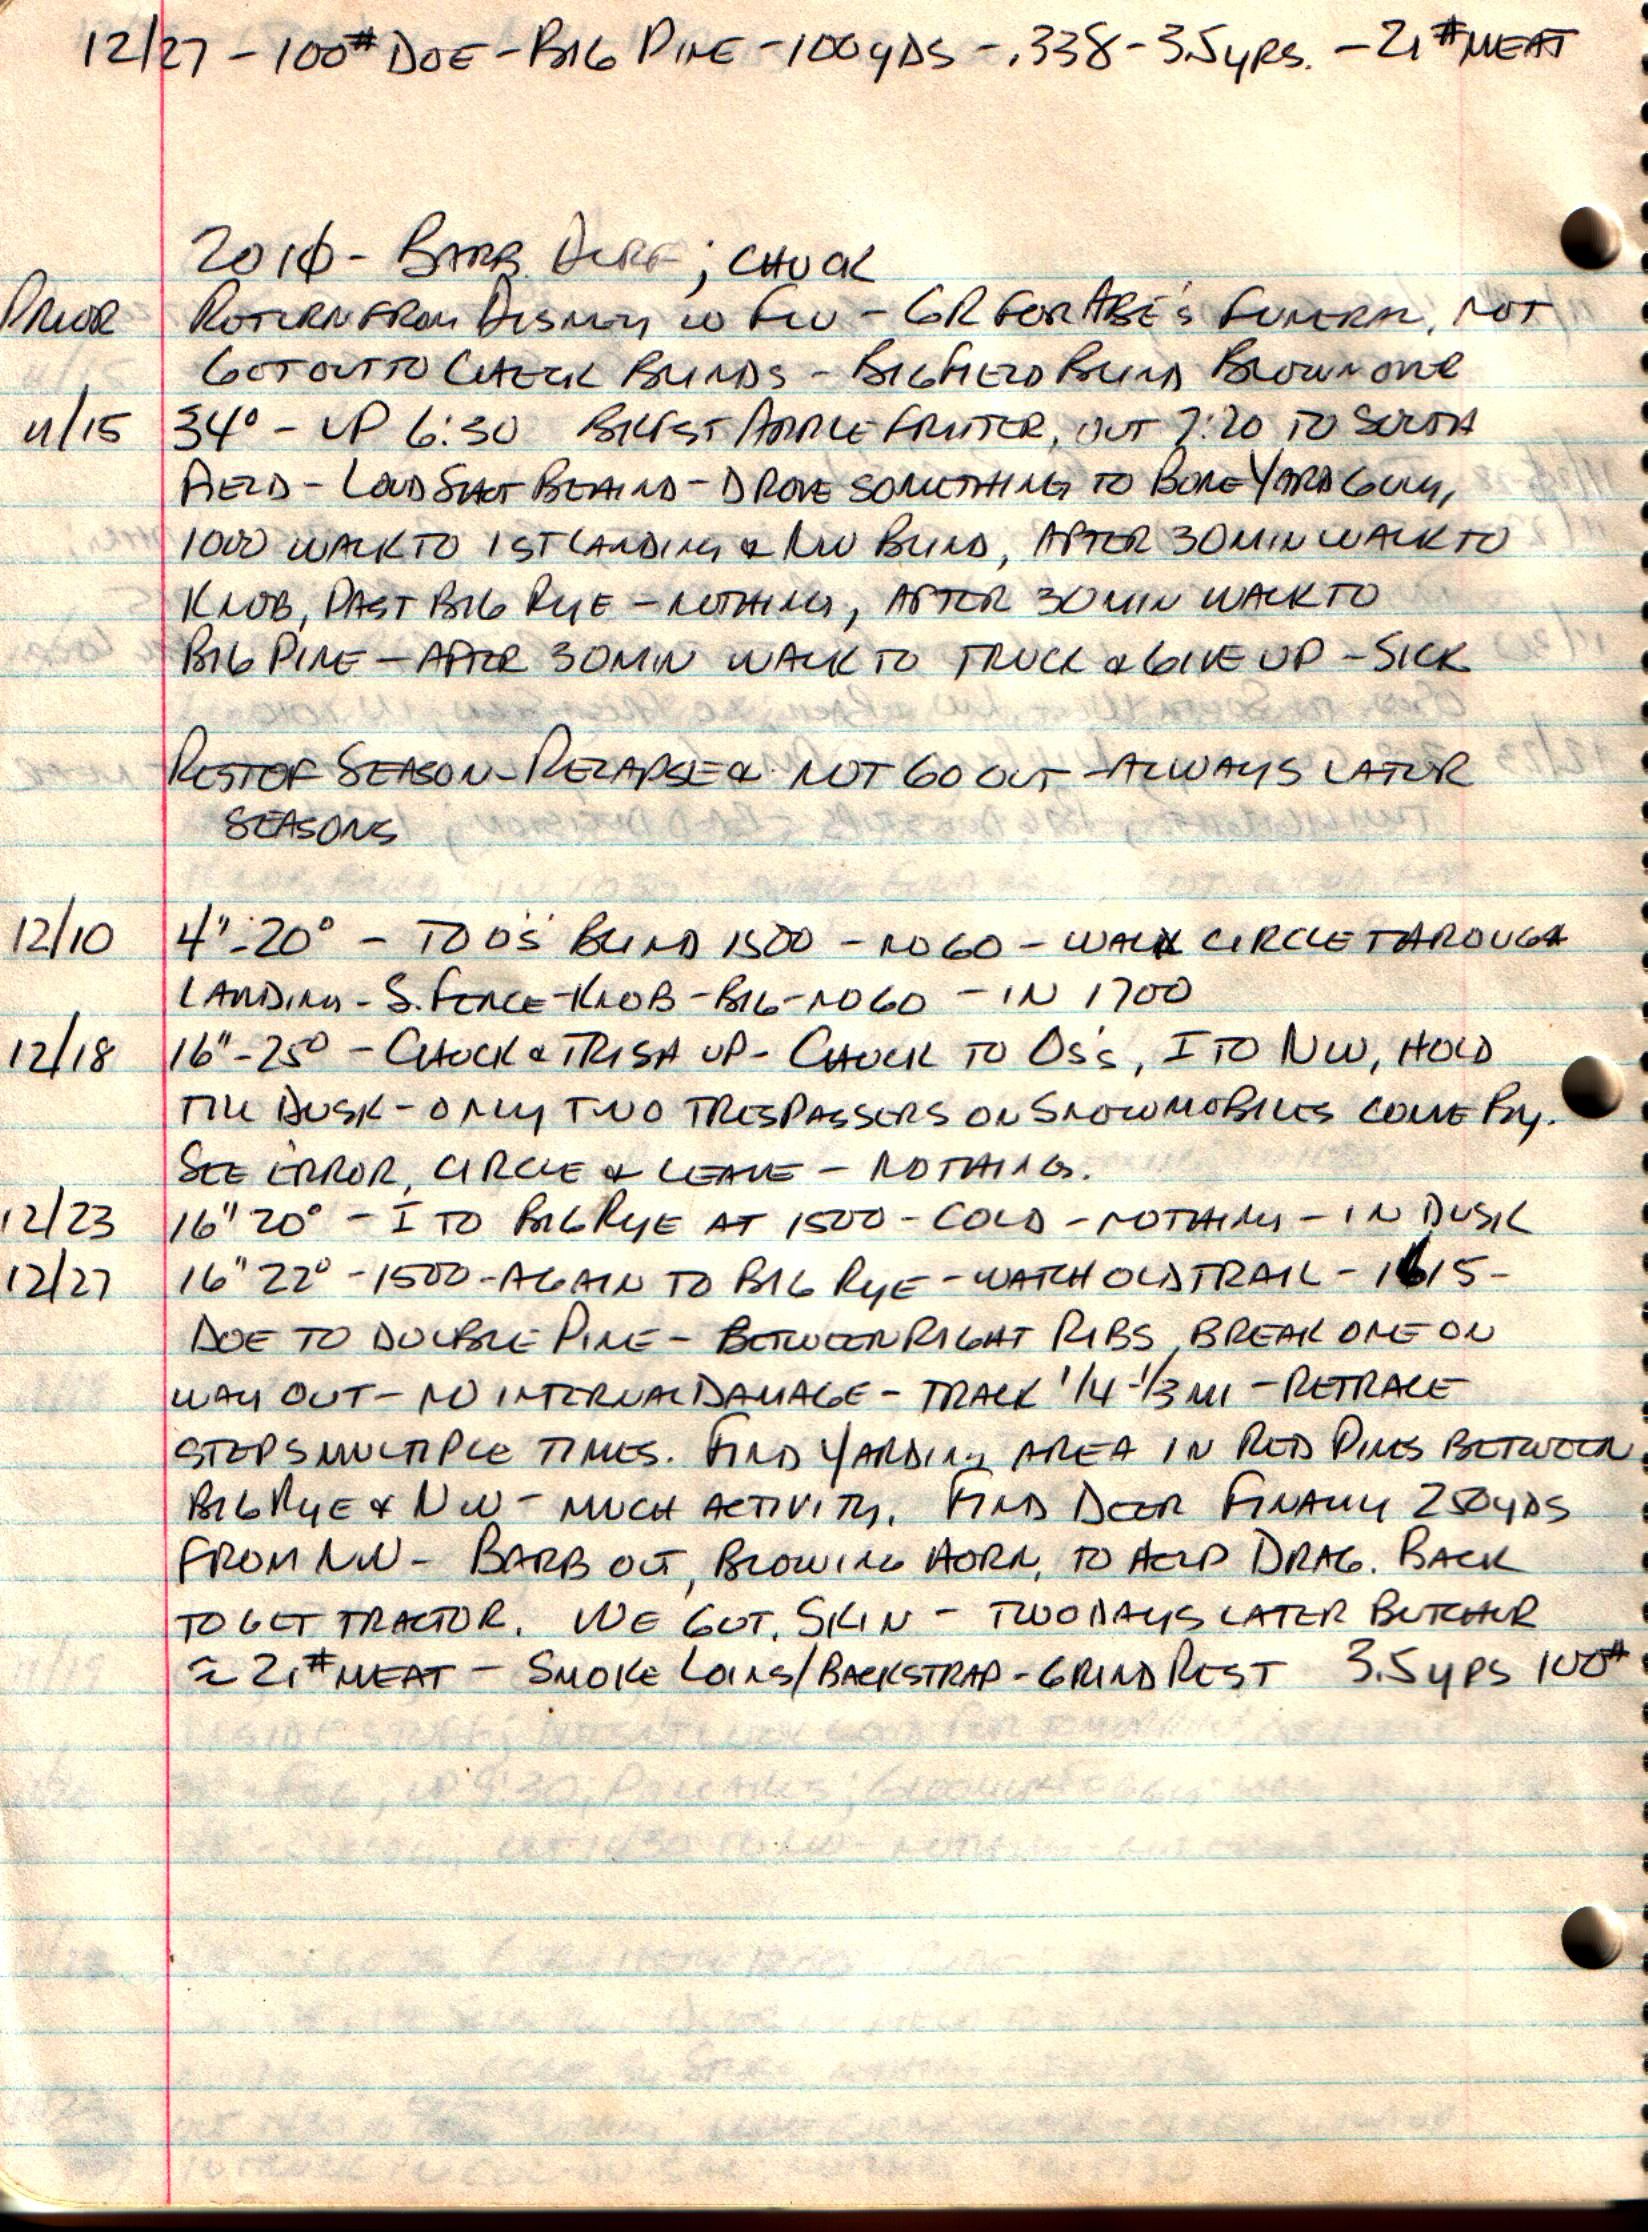 12/27 - 100# DOE - BIG PINE - 100 YDS - .338 - 3.5 YRS. - 21# MEAT
2010 - BARB, DERF; CHUCK
PRIOR RETURN FROM DISNEY W FLU - GR FOR ABE'S FUNERAL, NOT
GOT OUT TO CHECK BLINDS - BIG FIELD BLIND BLOWN OVER
11/15 34° - UP 6:30 BKFST APPLE FRITTER, OUT 7:20 TO SOUTH
FIELD - LOUD SHOT BEHIND - DROVE SOMETHING TO BONEYARD GUY,
1000 WALK TO 1ST LANDING & NW BLIND, AFTER 30 MIN WALK TO
KNOB, PAST BIG RYE - NOTHING, AFTER 30 MIN WALK TO
BIG PINE - AFTER 30 MIN WALK TO TRUCK & GIVE UP - SICK
REST OF SEASON - RELAPSE & NOT GO OUT - ALWAYS LATER
SEASONS
12/10 4" - 20° - TO O'S BLIND 1500 - NO GO - WALK CIRCLE THROUGH
LANDING - S. FENCE - KNOB - BIG - NO GO - IN 1700
12/18 16" - 25° - CHUCK & TRISH UP - CHUCK TO OS'S, I TO NW, HOLD
TILL DUSK - ONLY TWO TRESPASSERS ON SNOWMOBILES COME BY.
SEE ERROR, CIRCLE & LEAVE - NOTHING.
12/23 16" 20° - I TO BIG RYE AT 1500 - COLD - NOTHING - IN DUSK
12/27 16" 22° - 1500 - AGAIN TO BIG RYE - WATCH OLD TRAIL - 1615 -
DOE TO DOUBLE PINE - BETWEEN RIGHT RIBS, BREAK ONE ON
WAY OUT - NO INTERNAL DAMAGE - TRACK 1/4 - 1/3 MI - RETRACE
STEPS MULTIPLE TIMES. FIND YARDING AREA IN RED PINES BETWEEN
BIG RYE & NW - MUCH ACTIVITY. FIND DEER FINALLY 250 YDS
FROM NW - BARB OUT, BLOWING HORN, TO HELP DRAG. BACK
TO GET TRACTOR. WE GUT, SKIN - TWO DAYS LATER BUTCHER
≈ 21# MEAT - SMOKE LOINS/BACKSTRAP - GRIND REST 3.5 YRS 100#